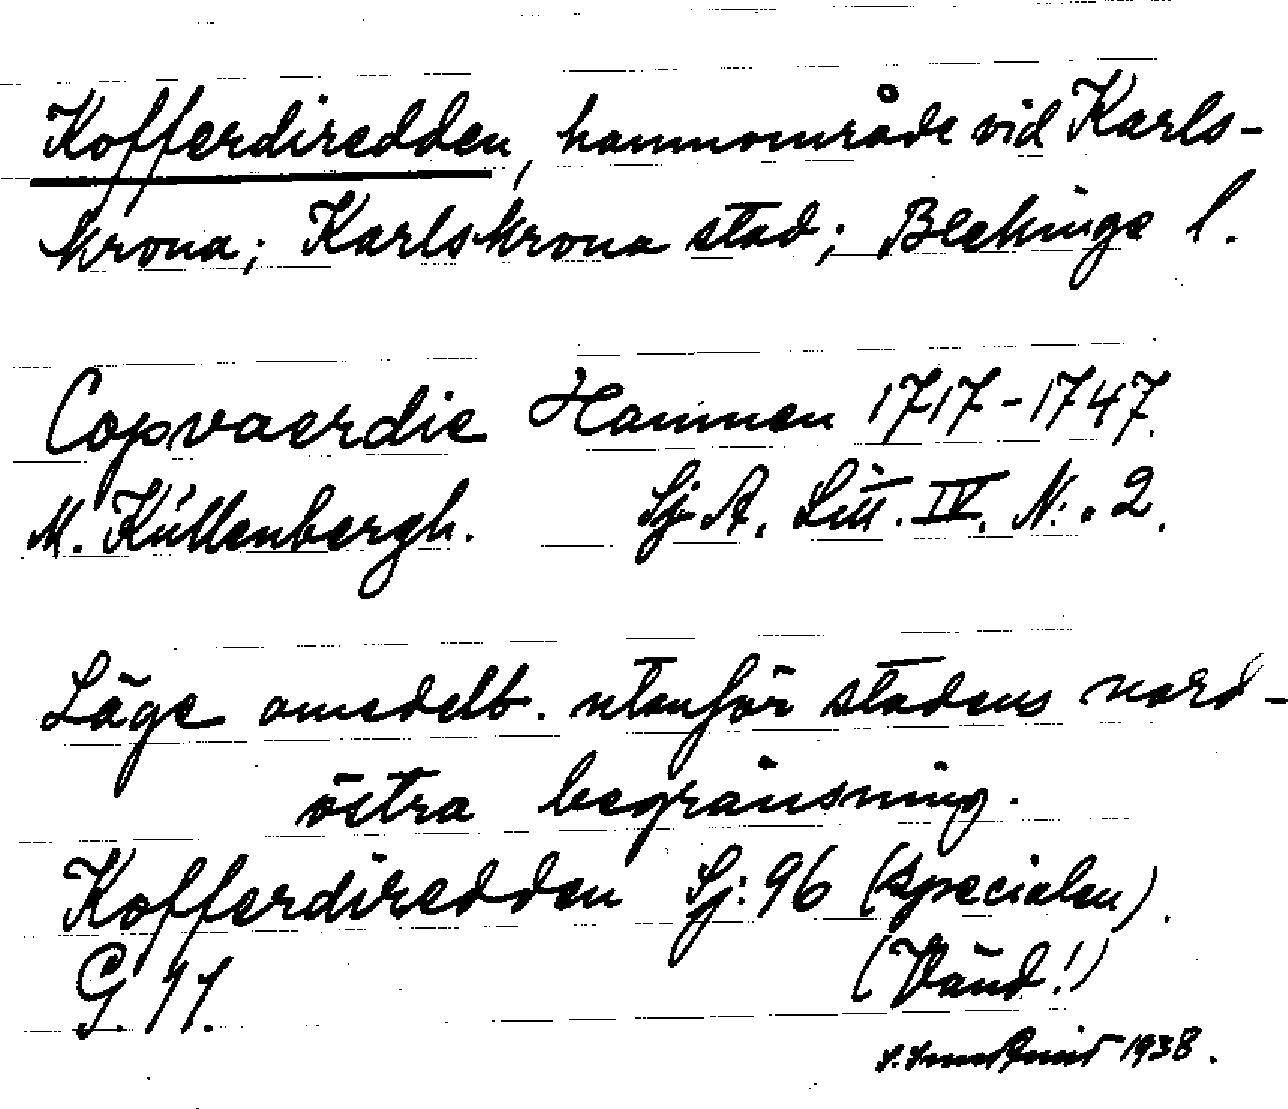 Kofferdiredden, hamnområde vid Karls-
krona; Karlskrona stad; Blekinge l.
Copvaerdie Hamnen 1717-1747.
M. Küllenbergh. Sj A. Litt. IV. N:. 2.
Läge omedelb. utanför stadens nord-
östra begränsning.
Kofferdiredden Sj: 96 (specialen).
G. 11.
(Vänd!)
1938.